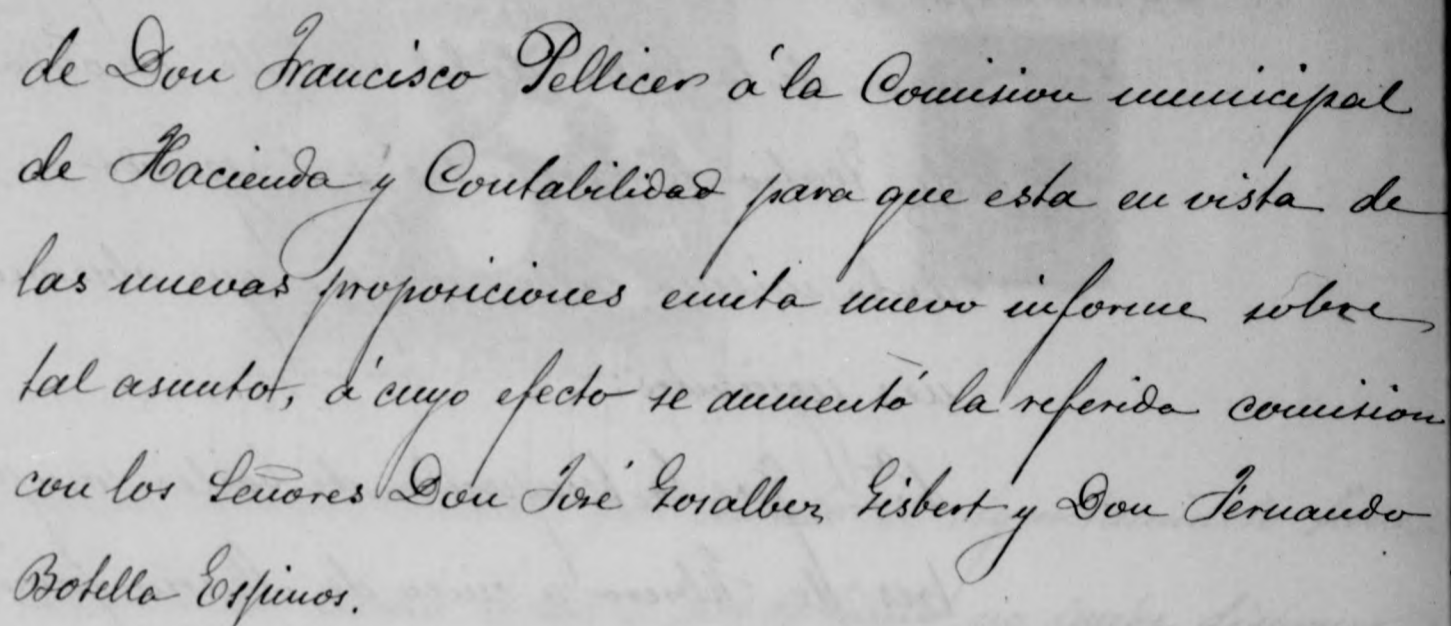 de Don Francisco Pellicer á la Comision municipal
de Hacienda y Contabilidad para que esta en vista de
las nuevas proposiciones emita nuevo informe sobre
tal asunto, á cuyo efecto se aumentó la referida comision
con los Señores Don José Gosalbez Gisbert y Don Fernando
Botella Espinos.